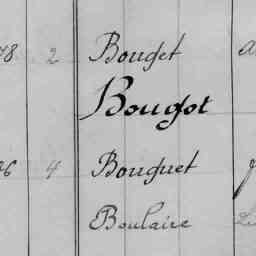 78 2 Bouget
Bougot
4 Bouguet
Boulaire